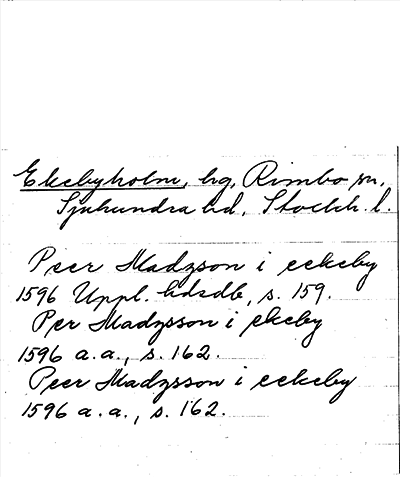 Ekebyholm, hg, Rimbo sn,
Sjuhundra hd, Stockh. l.
Peer Madzson i eekeby
1596 Uppl. hdsdb, s. 159.
Per Madzsson i ekeby
1596 a.a., s. 162.
Peer Madzsson i eekeby
1596 a.a., s. 162.